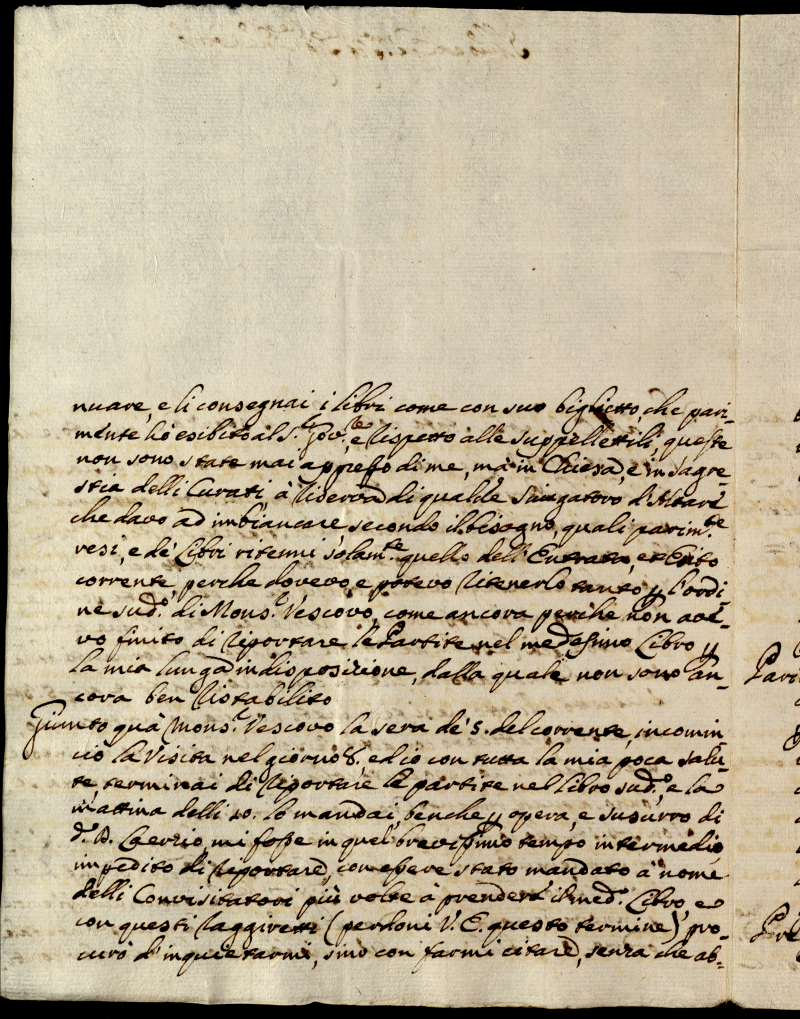 nuare, e li consegnai i libri come con suo biglietto, che pari-
mente hò esibito al S.r Gov.re, e rispetto alle suppellettili, queste
non sono state mai appresso di me, mà in Chiesa, e in sagre-
stia delli Curati, à riserva di qualche sciugatoro d'Altare
che davo ad imbiancare secondo il bisogno, quali parim.te
resi, e de' Libri ritenni solam.te quello dell'Entrata, et Esito
corrente, perche dovevo, e potevo ritenerlo tanto p l'ordi-
ne sud.o di Mons.r Vescovo, come ancora perche non ave-
vo finito di riportare le Partite nel medesimo Libro p
la mia lunga indisposizione, dalla quale non sono an-
cora ben ristabilito
Giunto quà Mons.r Vescovo la sera de' 5. del corrente, incomin-
ciò la Visita nel giorno 8. ed io con tutta la mia poca salu-
te, terminai di riportare le partite nel libro sud.o e la
mattina delli 10. lo mandai, benche p opera, e susurro di
d.o D. mi fosse in quel brevissimo tempo intermedio
impedito di riportare, con essere stato mandato à nome
delli Convisitatori più volte à prendere il med.o Libro, e
con questi raggiretti (perdoni V. E. questo termine) pro-
curò d'inquietarmi, sino con farmi citare, senza che ab-
Pre